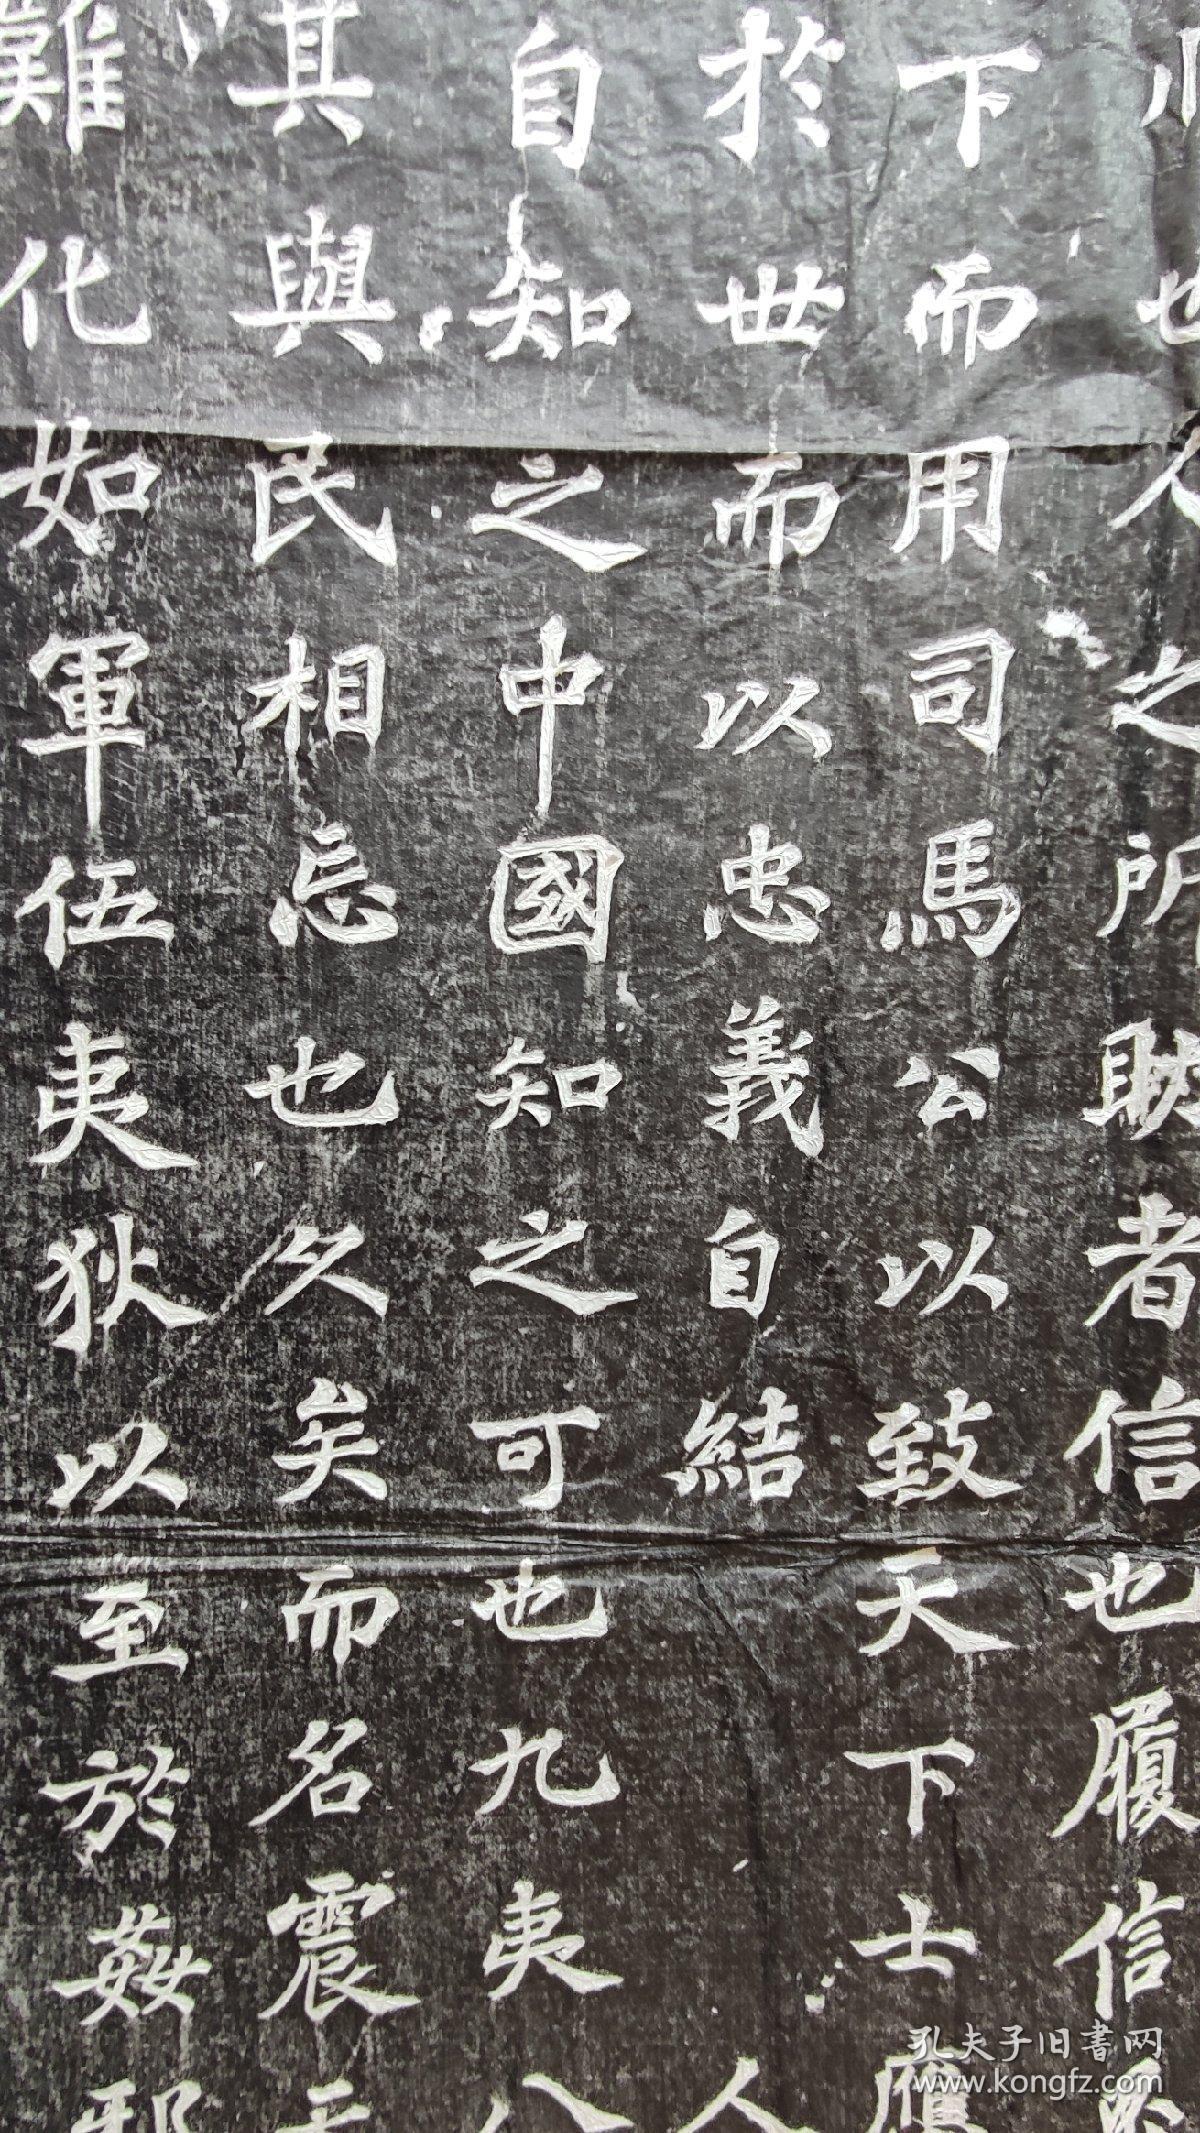 也人之所助者信也履信
下而用司馬公以致天下士應
於世而以忠義自結 人
自知之中國知之可也九夷八
其與民相忘也久矣而名震
難化如軍伍夷狄以至於姦邪
孔夫子旧書网
www.kongfz.com